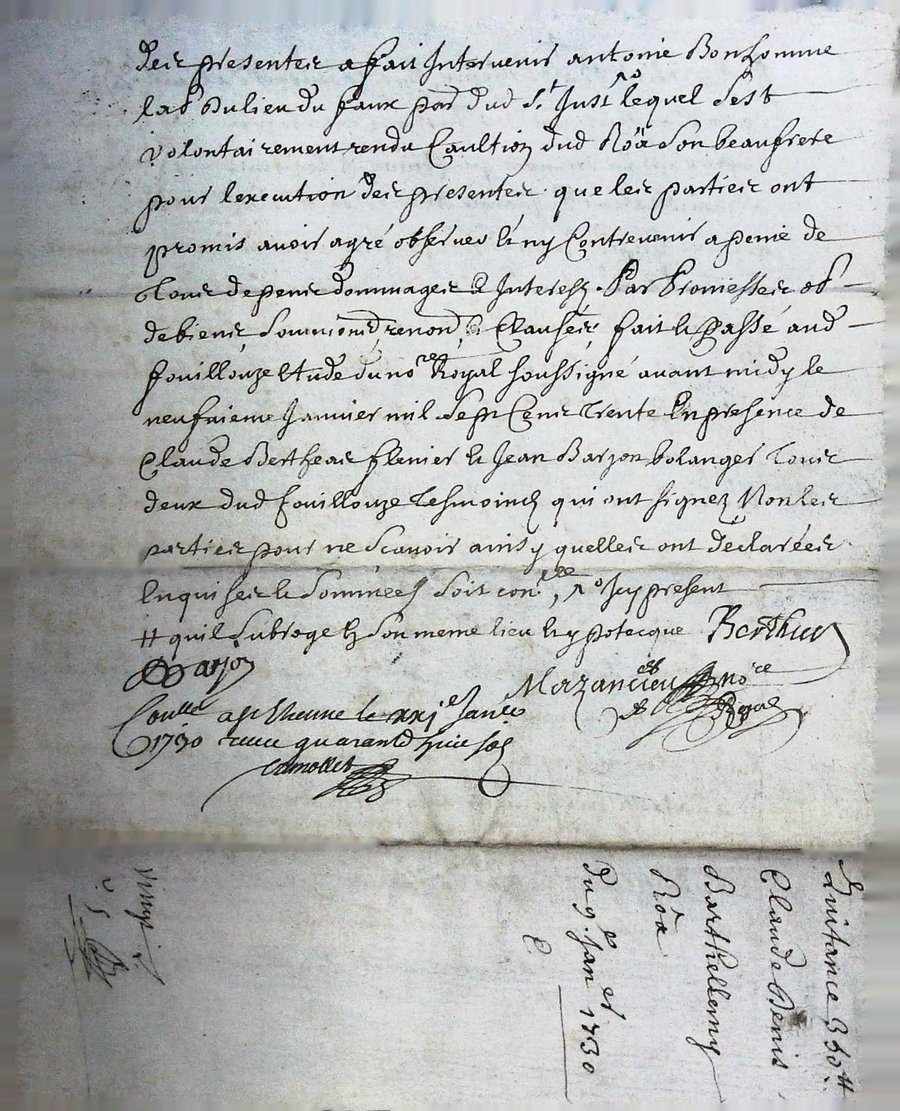 des presentes a fait Intervenir antoine Bonhomme
lab.r du lieu du faux par. dud S.t Just lequel s'est
volontairement rendu Caultion dud Röa son beaufrere
pour lexecution des presentes que les parties ont
promis avoir agré observer et ny Contrevenir a peine de
tous depens dommages & Interests. Par Promesses ob
de biens, soumiond, renond, & Clauses, fait et passé aud
fouillouze Etude du no.re Royal soussigné avant midy le
neufvieme Janvier mil sept Cens trente En presence de
Claude Bertheas et Jean Barjon bolanger tous
deux dud fouillouze tesmoins qui ont signez Non les
parties pour ne scavoir ainsy quelles ont déclarées
Enquises et sommées soit con.lle, Icy present
# quil subroge En son meme lieu et ypotecque Bertheas
Barjon
Mazancieu no.re
Royal
Conllé a St Etienne le xxj.e Janv.
1730 receu quarante sols
Quitance 350.tt
Claude Denis
Barthellemy
Röa
Du 9.e Jan.er 1730